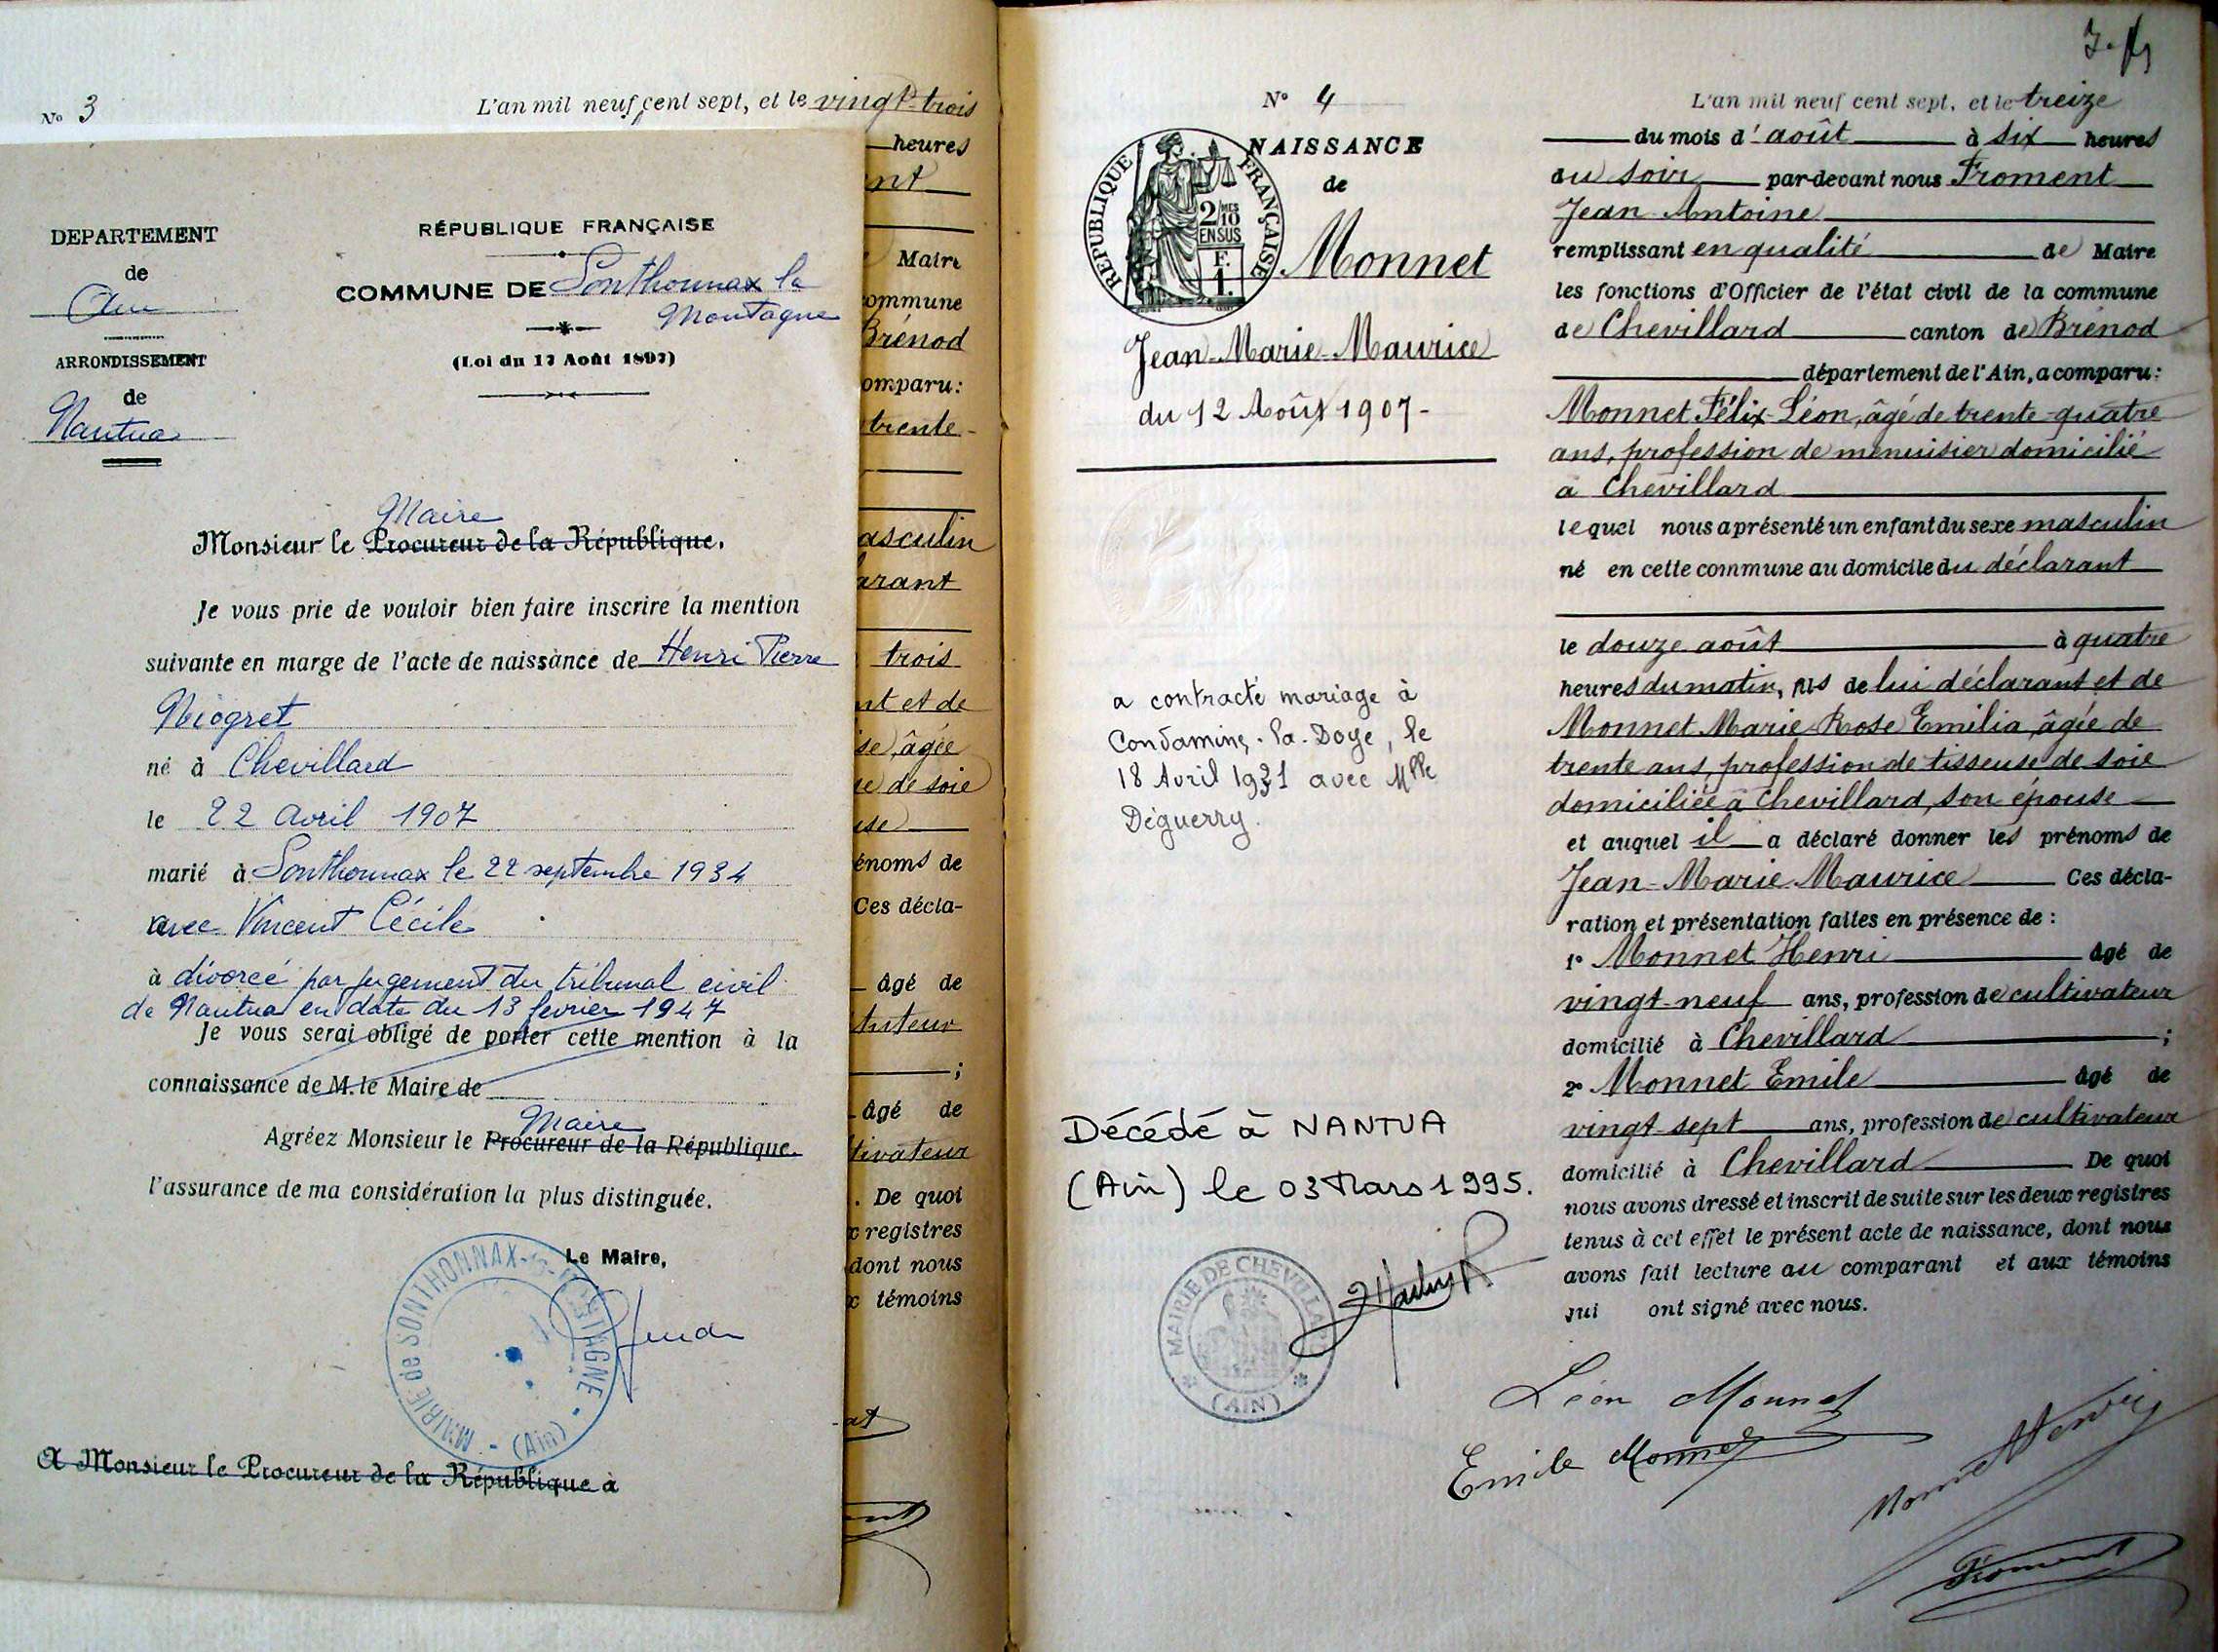 No 3
L'an mil neuf cent sept, et le vingt-trois
heures
ent
Maire
commune
Brénod
omparu:
trente-
asculin
arant
trois
nt et de
se, âgée
se de soie
use
énoms de
Ces décla-
âgé de
tuteur
;
âgé de
tivateur
. De quoi
x registres
dont nous
x témoins
DEPARTEMENT
de
Ain
ARRONDISSEMENT
de
Nantua
RÉPUBLIQUE FRANÇAISE
COMMUNE DE Sonthonnax la
Montagne
(Loi du 17 Août 1897)
Maire
Monsieur le Procureur de la République.
Je vous prie de vouloir bien faire inscrire la mention
suivante en marge de l'acte de naissance de Henri Pierre
Niogret
né à Chevillard
le 22 avril 1907
marié à Sonthonnax le 22 septembre 1934
avec Vincent Cécile
à divorcé par jugement du tribunal civil
de Nantua en date du 13 février 1947
Je vous serai obligé de porter cette mention à la
connaissance de M. le Maire de
Maire
Agréez Monsieur le Procureur de la République.
l'assurance de ma considération la plus distinguée.
Le Maire,
MAIRIE de SONTHONNAX-la-MONTAGNE - (Ain) -
A Monsieur le Procureur de la République à
No 4
NAISSANCE
de
RÉPUBLIQUE FRANÇAISE
2/10 MES
EN SUS
F.
1.
Monnet
Jean-Marie-Maurice
du 12 Août 1907-
a contracté mariage à
Condamine-la-Doye, le
18 Avril 1931 avec Mlle
Déguerry.
Décédé à NANTUA
(Ain) le 03 Mars 1995.
MAIRIE DE CHEVILLARD
(AIN)
L'an mil neuf cent sept, et le treize
du mois d'août à six heures
du soir par-devant nous Froment
Jean Antoine
remplissant en qualité de Maire
les fonctions d'Officier de l'état civil de la commune
de Chevillard canton de Brénod
département de l'Ain, a comparu:
Monnet Félix-Léon, âgé de trente-quatre
ans, profession de menuisier domicilié
à Chevillard
lequel nous a présenté un enfant du sexe masculin
né en cette commune au domicile du déclarant
le douze août à quatre
heures du matin, fils de lui déclarant et de
Monnet Marie Rose Emilia, âgée de
trente ans, profession de tisseuse de soie
domiciliée à Chevillard, son épouse
et auquel il a déclaré donner les prénoms de
Jean-Marie-Maurice Ces décla-
ration et présentation faites en présence de :
1° Monnet Henri âgé de
vingt-neuf ans, profession de cultivateur
domicilié à Chevillard ;
2° Monnet Emile âgé de
vingt-sept ans, profession de cultivateur
domicilié à Chevillard De quoi
nous avons dressé et inscrit de suite sur les deux registres
tenus à cet effet le présent acte de naissance, dont nous
avons fait lecture au comparant et aux témoins
qui ont signé avec nous.
Léon Monnet
Emile Monnet
Monnet Henri
Froment